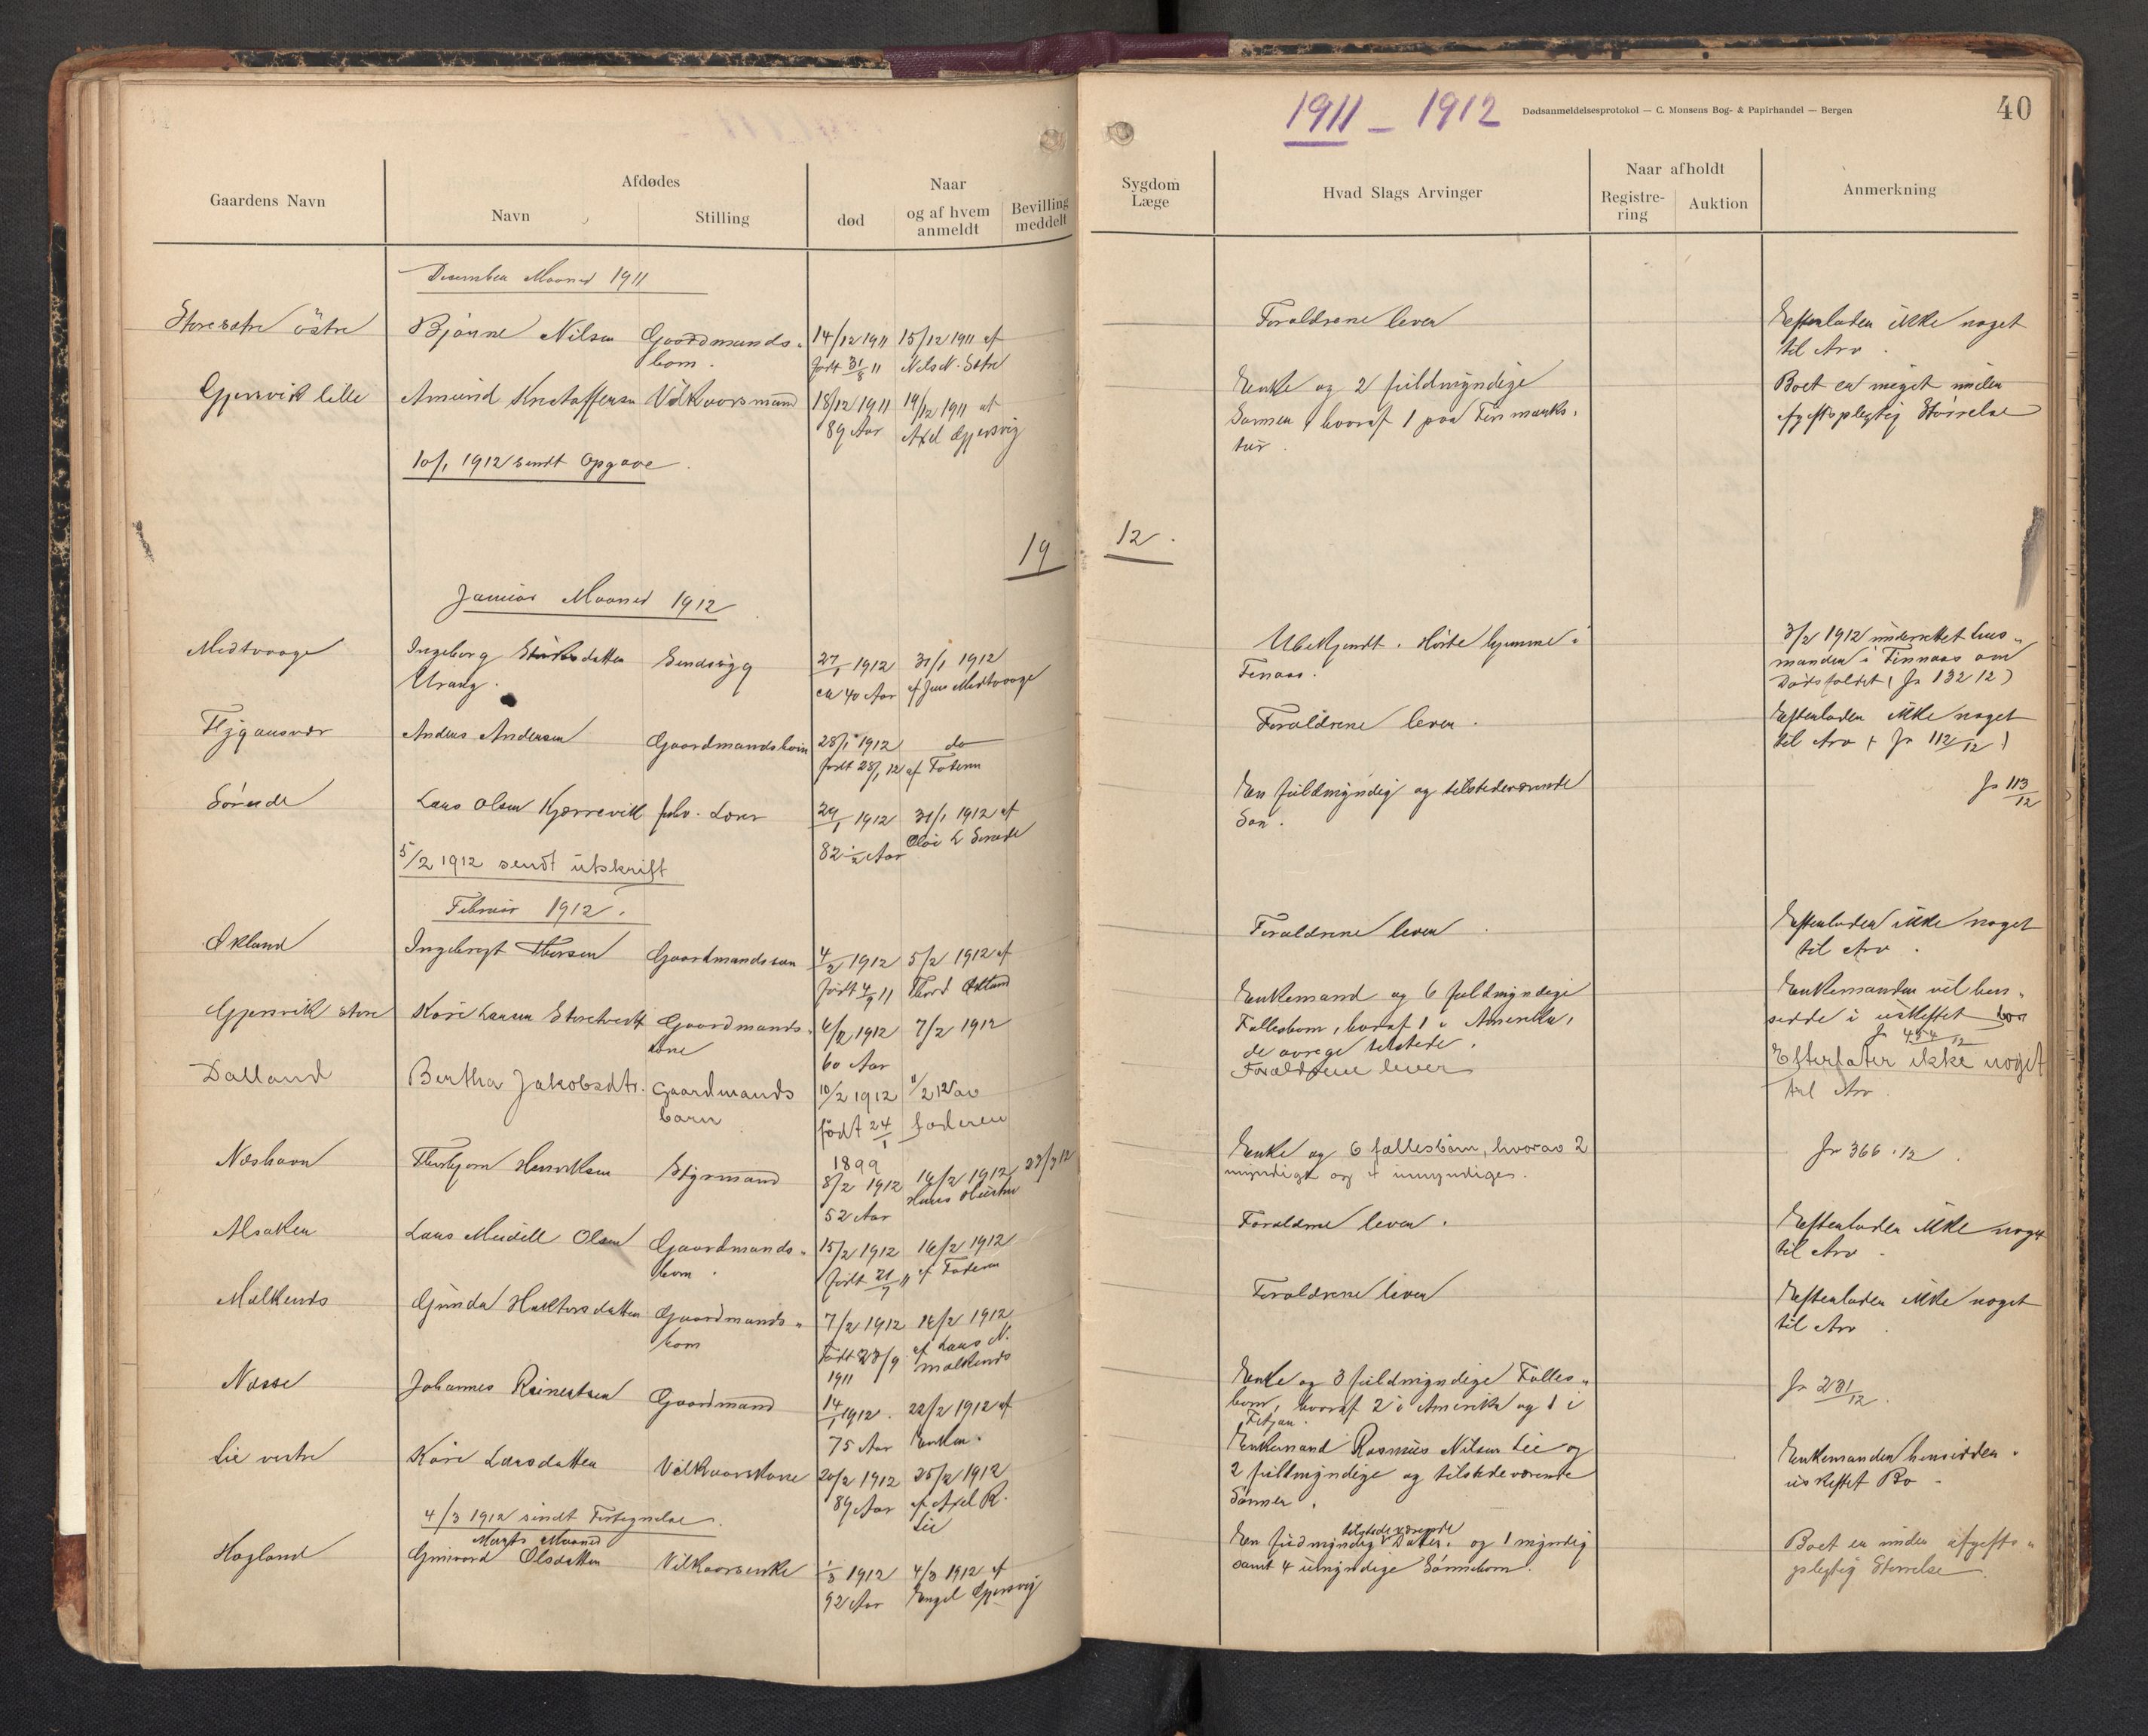 1911 - 1912
Dødsanmeldelsesprotokol — C. Monsens Bog- & Papirhandel — Bergen
40
Gaardens Navn
Afdødes
Navn
Stilling
Naar
død
og af hvem anmeldt
Bevilling meddelt
Sygdom
Læge
Hvad Slags Arvinger
Naar afholdt
Registre-
ring
Auktion
Anmerkning
December Maaned 1911
Storesætre östre Bjarne Nilsen Gaardmands- 14/12 1911 15/12 1911 af Forældrene lever Efterlader ikke noget
barn. født 31/8 11 Nils N. Sætre til Arv.
Gjersvik lille Amund Kristoffersen Vilkaarsmand 18/12 1911 19/12 1911 af Enke og 2 fuldmyndige Boet er meget under
89 Aar Axel Gjersvig Sønner, hvoraf 1 paa Finmarks- afgiftspligtig Størrelse
tur.
10/1 1912 sendt Opgave.
19 12.
Januar Maaned 1912
Medtvaage Ingeborg datter Sindssyg 27/1 1912 31/1 1912 Ubekjendt. Hørte hjemme i 3/2 1912 underrettet lens-
Urang. ca 40 Aar af Jens Medtvaage Finaas. manden i Finnaas om
Dødsfaldet (Jr 132 12)
Anders Andersen Gaardmandsbarn 28/1 1912 do Forældrene lever. Efterlader ikke noget
født 28/1 12 af Faderen til Arv (Jr 112/12)
Sørude Lars Olsen Kjærrevik forhv. Lærer 29/1 1912 31/1 1912 af En fuldmyndig og tilstedeværende Jr 113/12
82 1/2 Aar Olai L Sørude Søn.
5/2 1912 sendt utskrift
Februar 1912.
Økland Ingebregt Thorsen Gaardmandssøn 4/2 1912 5/2 1912 af Forældrene lever. Efterlader ikke noget
født 4/9 11 Thord Økland til Arv.
Gjersvik store Kari Larsen Storetvedt Gaardmands- 6/2 1912 7/2 1912 Enkemand og 6 fuldmyndige Enkemanden vil hen-
kone 60 Aar Fællesbørn, hvoraf 1 i Amerika, sidde i uskiftet bo
de øvrige tilstede. Jr 454/12
Dalland Bertha Jakobsdtr. Gaardmands 10/2 1912 11/2 12 av Forældrene lever Efterlater ikke noget
barn født 24/1 1899 faderen til Arv.
Næshavn Thorbjørn Henriksen Styrmand 8/2 1912 16/2 1912 27/3 12 Enke og 6 fællesbørn, hvorav 2 Jr 366.12
52 Aar Hans myndige og 4 umyndige.
Alsaker Lars Meidell Olsen Gaardmands- 15/2 1912 16/2 1912 Forældrene lever. Efterlader ikke noget
barn. født 21/7 11 af Faderen til Arv.
Mælkevds Gunda Haktorsdatter Gaardmands- 7/2 1912 16/2 1912 Forældrene lever Efterlader ikke noget
barn født 23/9 1911 af Lars N. til Arv.
Næsse Johannes Reinertsen Gaardmand 14/1 1912. 22/2 1912 af Enke og 3 fuldmyndige Fælles- Jr 231/12.
75 Aar Enken. børn, hvoraf 2 i Amerika og 1 i
Fitjar.
Lie vestre Kari Larsdatter Vilkaarskone 20/2 1912 25/2 1912 Enkemand Rasmus Nilsen Lie og Enkemanden hensidder
89 Aar af Axel R. Lie 2 fuldmyndige og tilstedeværende uskiftet Bo.
Sønner.
4/3 1912 sendt Fortegnelse.
Marts Maaned
Hogland Olsdatter Vilkaarsenke 1/3 1912 4/3 1912 af En fuldmyndig tilstedeværende Datter. og 1 myndig Boet er under afgifts-
92 Aar Engel Gjersvig samt 4 umyndige Sønnebørn. pligtig Størrelse.